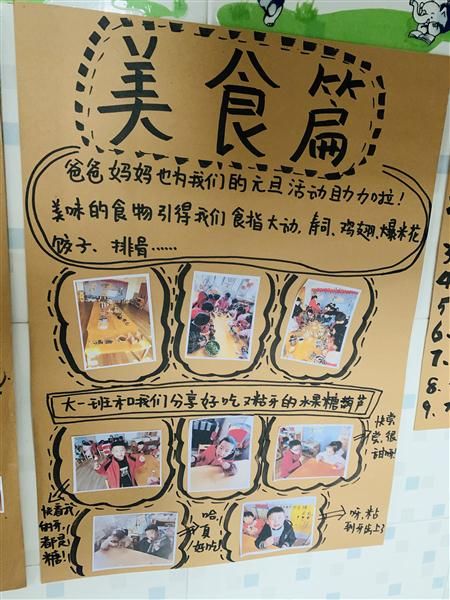 美食篇
爸爸妈妈也为我们的元旦活动助力啦!
美味的食物引得我们食指大动,寿司、鸡翅、爆米花
饺子、排骨……
大一班和我们分享好吃又粘牙的水果糖葫芦
快尝
尝,很
快看我
的牙,
都是
糖!
哈,
真
好吃!
呀,粘
到牙齿上了
4.
5.
6.
7.
8.
9.